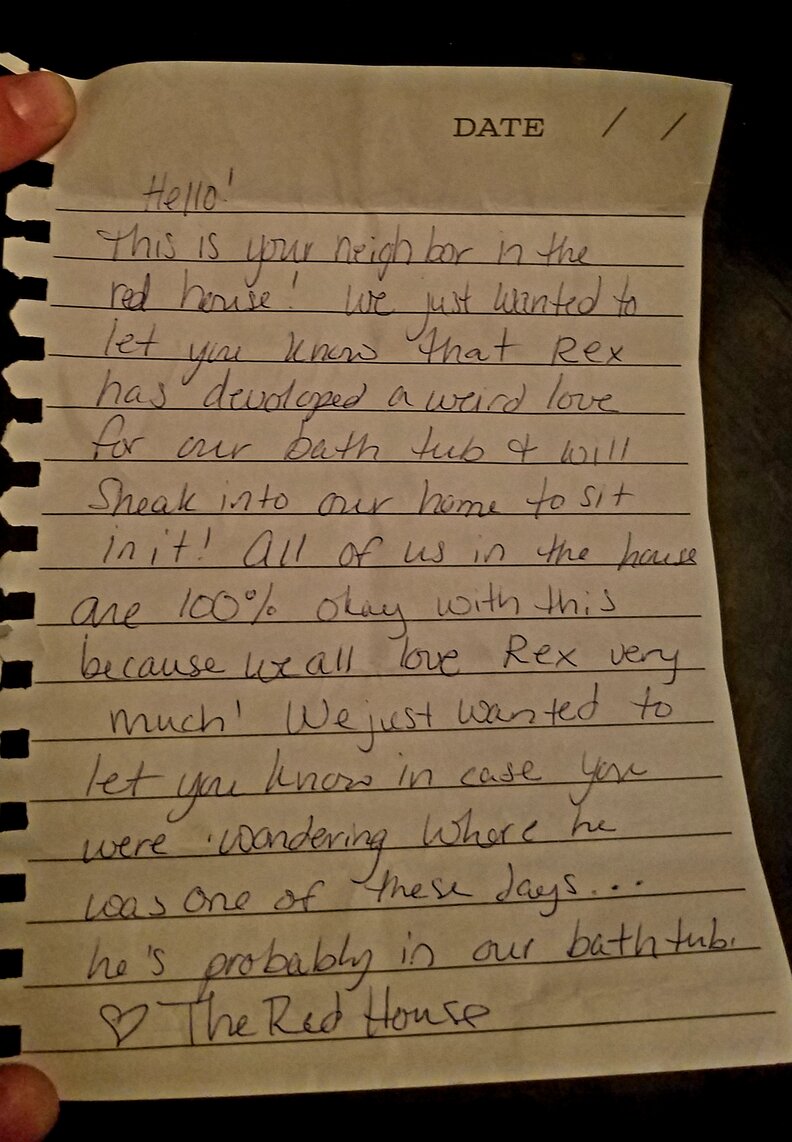 DATE / /
Hello!
This is your neighbor in the
red house! We just wanted to
let you know that Rex
has devoloped a weird love
for our bath tub & will
Sneak into our home to sit
in it! All of us in the house
are 100% okay with this
because we all love Rex very
much! We just wanted to
let you know in case you
were wandering where he
was one of these days...
he's probably in our bathtub.
♡ The Red House